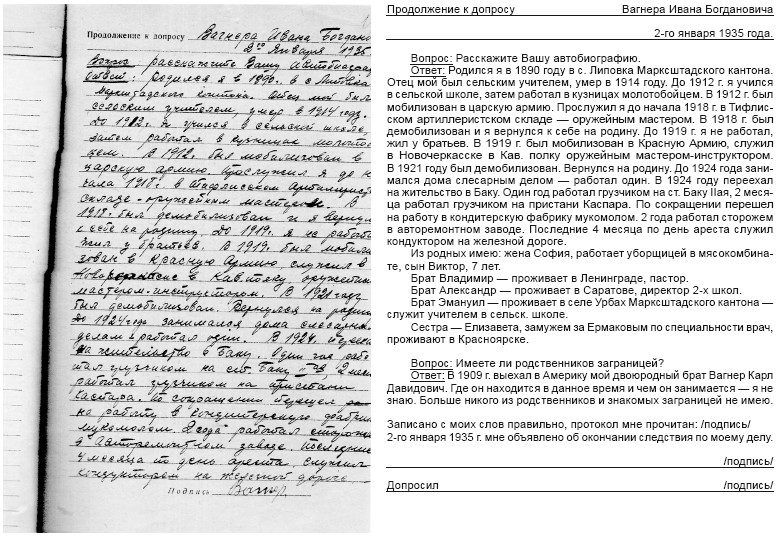 Продолжение к допросу Вагнера Ивана Богдано
2го Января 1935
Вопрос расскажите Вашу автобиограф
Ответ: Родился я в 1890. в с Липовка
кантона. Отец мой был
сельским учителем умер в 1914 году.
До 1912 г. я учился в сельской школе,
затем работал в кузницах молотоб
цем. В 1912. был мобилизован в
царскую армию. Прослужил я до на
чала 1918 г. в Тифлисском Артиллерист
складе-оружейным мастером. В
1918 г. был демобилизован и я вернул
к себе на родину. До 1919. я не работал
жил у братьев. В 1919. был мобили
зован в Красную Армию, служил в
Новочеркасске в Кав. полку оружейны
мастером-инструктором. В 1921 году
был демобилизован. Вернулся на роди
До 1924 года занимался дома слесарны
делом-работал один. В 1924. переех
на жительство в Баку. Один год рабо
тал грузчиком на ст. Баку 2 меся
работал грузчиком на пристани
Каспара. По сокращении перешел
на работу в кондитерскую фабрик
мукомолом. 2 года работал сторож
в авторемонтном заводе. Последние
4 месяца по день ареста, служил
кондуктором на железной дороге
Подпись Вагнер.
Продолжение к допросу Вагнера Ивана Богдановича
2-го января 1935 года.
Вопрос: Расскажите Вашу автобиографию.
Ответ: Родился я в 1890 году в с. Липовка Марксштадского кантона.
Отец мой был сельским учителем, умер в 1914 году. До 1912 г. я учился
в сельской школе, затем работал в кузницах молотобойцем. В 1912 г. был
мобилизован в царскую армию. Прослужил я до начала 1918 г. в Тифлис-
ском артиллеристском складе — оружейным мастером. В 1918 г. был
демобилизован и я вернулся к себе на родину. До 1919 г. я не работал,
жил у братьев. В 1919 г. был мобилизован в Красную Армию, служил
в Новочеркасске в Кав. полку оружейным мастером-инструктором.
В 1921 году был демобилизован. Вернулся на родину. До 1924 года зани-
мался дома слесарным делом — работал один. В 1924 году переехал
на жительство в Баку. Один год работал грузчиком на ст. Баку IIая, 2 меся-
ца работал грузчиком на пристани Каспара. По сокращении перешел
на работу в кондитерскую фабрику мукомолом. 2 года работал сторожем
в авторемонтном заводе. Последние 4 месяца по день ареста служил
кондуктором на железной дороге.
Из родных имею: жена София, работает уборщицей в мясокомбина-
те, сын Виктор, 7 лет.
Брат Владимир — проживает в Ленинграде, пастор.
Брат Александр — проживает в Саратове, директор 2-х школ.
Брат Эмануил — проживает в селе Урбах Марксштадского кантона —
служит учителем в сельск. школе.
Сестра — Елизавета, замужем за Ермаковым по специальности врач,
проживают в Красноярске.
Вопрос: Имеете ли родственников заграницей?
Ответ: В 1909 г. выехал в Америку мой двоюродный брат Вагнер Карл
Давидович. Где он находится в данное время и чем он занимается — я не
знаю. Больше никого из родственников и знакомых заграницей не имею.
Записано с моих слов правильно, протокол мне прочитан: /подпись/
2-го января 1935 г. мне объявлено об окончании следствия по моему делу.
/подпись/
Допросил /подпись/